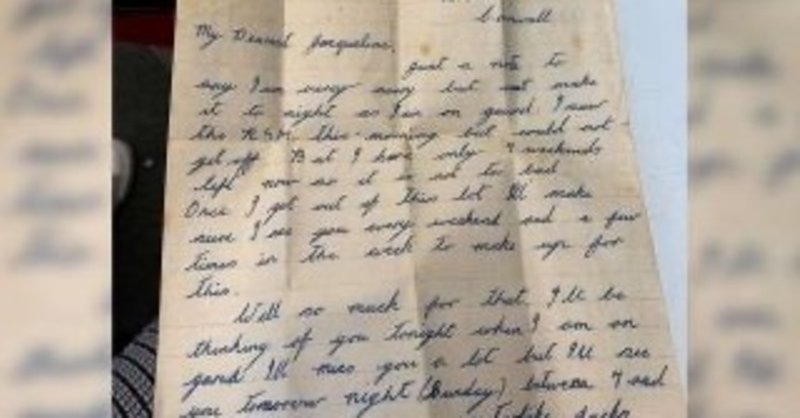 Cornwall
My Dearest Jacqueline,
Just a note to
say I am very sorry but can not make
it to night as I am on guard. I saw
the R.S.M. this morning but could not
get off. But I have only 4 weekends
left now so it is not to bad
Once I get out of this lot I'll make
sure I see you every weekend and a few
times in the week to make up for
this.
Well so much for that, I'll be
thinking of you tonight when I am on
guard I'll miss you a lot but I'll see
you tomorrow night (Sunday) between 7 and